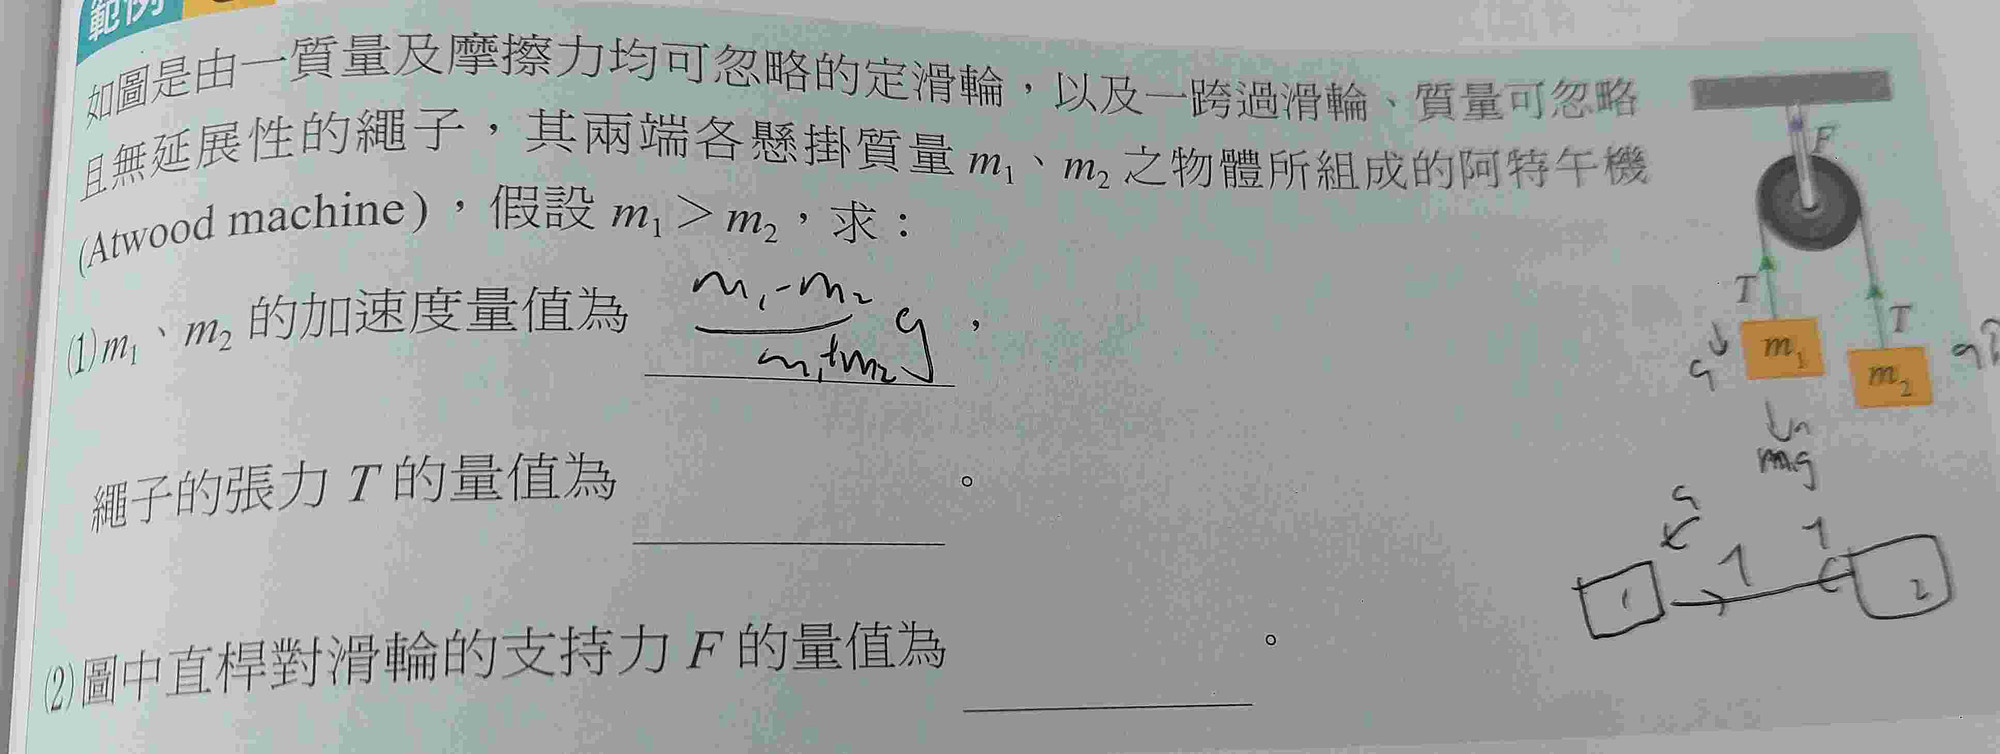 範例
如圖是由一質量及摩擦力均可忽略的定滑輪，以及一跨過滑輪、質量可忽略
且無延展性的繩子，其兩端各懸掛質量 m₁、m₂ 之物體所組成的阿特午機
(Atwood machine)，假設 m₁ > m₂，求：
(1) m₁、m₂ 的加速度量值為 (m₁-m₂)/(m₁+m₂) g，
繩子的張力 T 的量值為 。
(2) 圖中直桿對滑輪的支持力 F 的量值為 。
F
T
T
m₁
m₂
m₁g
1
2